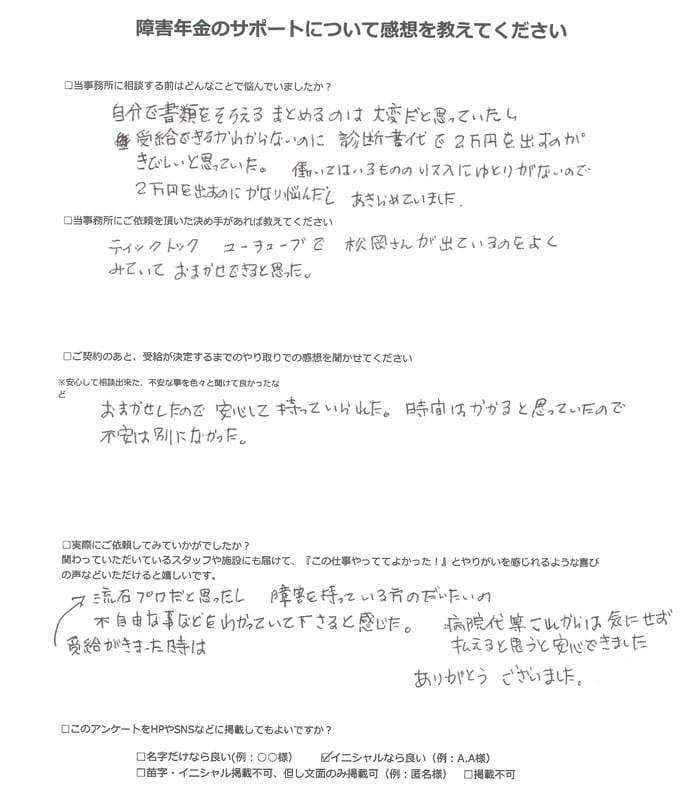 障害年金のサポートについて感想を教えてください
□当事務所に相談する前はどんなことで悩んでいましたか？
自分で書類をそろえるまとめるのは大変だと思っていたし
受給できるかわからないのに 診断書代で2万円を出すのが
きびしいと思っていた。 働いてはいるものの収入にゆとりがないので
2万円を出すのにかなり悩んだし あきらめていました.
□当事務所にご依頼を頂いた決め手があれば教えてください
ティックトック ユーチューブで 松岡さんが出ているのをよく
みていて おまかせできると思った。
□ご契約のあと、受給が決定するまでのやり取りでの感想を聞かせてください
※安心して相談出来た、不安な事を色々と聞けて良かったな
ど
おまかせしたので 安心して 持っていられた。 時間はかかると思っていたので
不安は別になかった。
□実際にご依頼してみていかがでしたか？
関わっていただいているスタッフや施設にも届けて、『この仕事やっててよかった！』とやりがいを感じれるような喜び
の声などいただけると嬉しいです。
流石プロだと思ったし 障害を持っている方のだいたいの
不自由な事などをわかっていて下さると感じた。 病院代等これからは気にせず
受給がきまった時は 払えると思うと安心できました
ありがとう ございました。
□このアンケートをHPやSNSなどに掲載してもよいですか？
□名字だけなら良い(例：○○様） ☑イニシャルなら良い（例：A.A様）
□苗字・イニシャル掲載不可、但し文面のみ掲載可（例：匿名様） □掲載不可